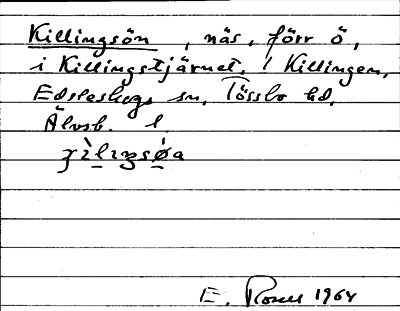 Killingsön, näs, förr ö,
i Killingstjärnet, i Killingen,
Edsleskogs sn, Tössbo hd,
Älvsb. l.
E. Rosell 1964